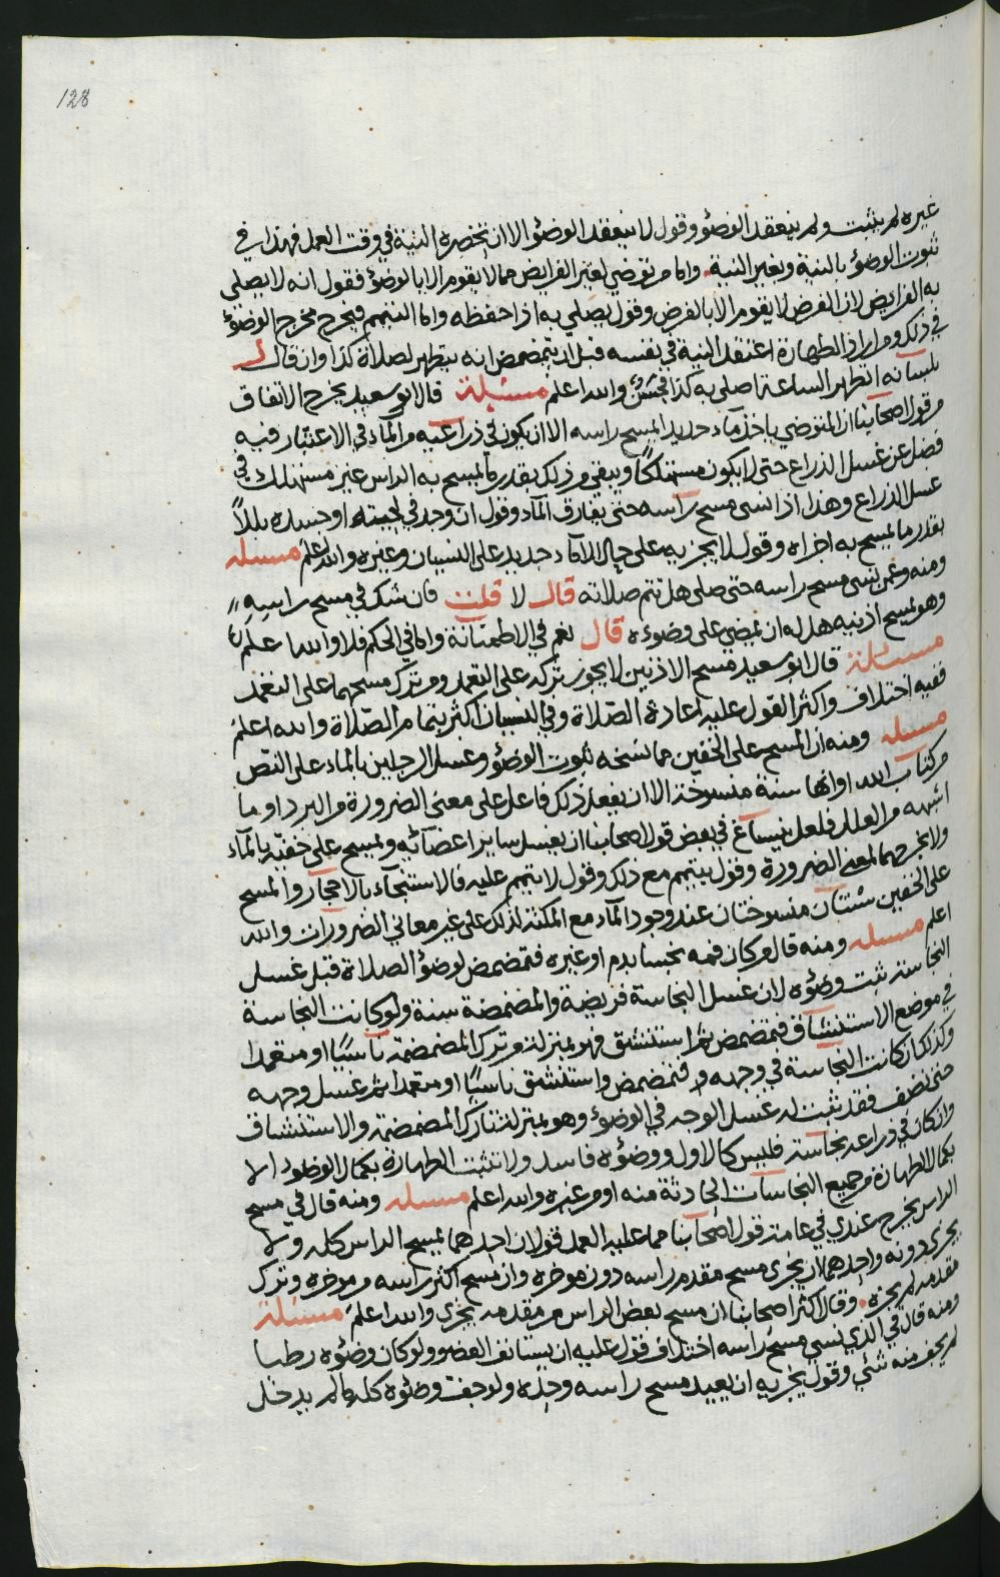 128
غيره لم يثبت ولم ينعقد الوضؤ وقول لا ينعقد الوضؤ الا ان تحضره النية في وقت العمل فهذا في
ثبوت الوضؤ بالنية وبغير النية. واما من توضي لغير الفرايض مما لا يقوم الا بالوضؤ فقول انه لا يصلي
به الفرايض لان الفرض لا يقوم الا بالفرض وقول يصلي به اذا حفظه واما التيمم فيخرج مخرج الوضوء
في ذلك ومن اراد الطهارة اعتقد النية في نفسه قبل ان يتمضمض انه يتطهر لصلاة كذا وان قال
بلسانه اتطهر الساعة اصلي به كذا فحسن والله اعلم مسئلة قال ابو سعيد يخرج الاتفاق
من قول اصحابنا ان المتوضي ياخذ ماء جديد المسح راسه الا ان يكون في ذراعيه من الماء في الاعتبار فيه
فضل عن غسل الذراع حتى لا يكون مستهلكا ويبقى من ذلك بقدر ما يمسح به الراس غير مستهلك في
غسل الذراع وهذا اذا نسي مسح راسه حتى يفارق الماء وقول ان وجد في لحيته او جسده بللاً
بقدر ما يمسح به اجزاه وقول لا يجزيه على حال الا ماء جديد على النسيان وغيره والله اعلم مسئله
ومنه وعمن نسي مسح راسه حتى صلى هل تتم صلاته قال لا قلت فان شك في مسح راسه
وهو يمسح اذنيه هل له ان يمضي على وضوءه قال نعم في الاطمئنانة واما في الحكم فلا والله اعلم
مسئلة قال ابو سعيد مسح الاذنين لا يجوز تركه على التعمد ومن ترك مسحهما على التعمد
ففيه اختلاف واكثر القول عليه اعادة الصلاة وفي النسيان اكثر يتما من الصلاة والله اعلم
مسئله ومنه ان المسح على الخفين مما نسخه ثبوت الوضؤ وغسل الرجلين بالماء على النص
من كتاب الله او انها سنة منسوخة الا ان يفعل ذلك فاعل على معنى الضرورة من البرد او ما
اشبهه من العلل فلعل ينساغ في بعض قول اصحابنا ان يغسل ساير اعضائه ويمسح على خفيه بالماء
ولا يخرجهما لمعنى الضرورة وقول يتيمم مع ذلك وقول لا يتيمم عليه فالاستنجاء بالاحجار والمسح
على الخفين سنتان منسوختان عند وجود الماء مع المكنة لذلك على غير معاني الضرورات والله
اعلم مسئله ومنه قال من كان فمه نجسا بدم او غيره فتمضمض لوضؤ الصلاة قبل غسل
النجاسة ثبت وضؤه لان غسل النجاسة فريضة والمضمضة سنة ولو كانت النجاسة
في موضع الاستنشاق فتمضمض ثم استنشق فهو بمنزلة من ترك المضمضة ناسيًا او متعمدا
وكذلك ان كانت النجاسة في وجهه فتمضمض واستنشق ناسيًا او متعمدا ثم غسل وجهه
حتى نضف فقد ثبت له غسل الوجه في الوضوء وهو بمنزلة تارك المضمضة والاستنشاق
وان كان في ذراعه نجاسة فليس كالاول ووضؤه فاسد ولا تثبت الطهارة بكمال الوضوء الا
بكمال الطهارة من جميع النجاسات الحادثة منه او من غيره والله اعلم مسئله ومنه قال في مسح
الراس يخرج عندي في عامة قول اصحابنا مما عليه العمل قولان احدهما يمسح الراس كله ولا
يجزى دونه واحدهما ان يجزى مسح مقدم راسه دون موخره وان مسح اكثر راسه من موخره وترك
مقدمه لم يجزه. وقال اكثر اصحابنا ان مسح بعض الراس من مقدمه يجزى والله اعلم مسئلة
ومنه قال في الذي نسي مسح راسه اختلاف قول عليه ان يستانف الوضوء ولو كان وضؤه رطبا
لم يجف منه شي وقول يجزيه ان يعيد مسح راسه وحده ولو جف وضؤه كله ما لم يدخل